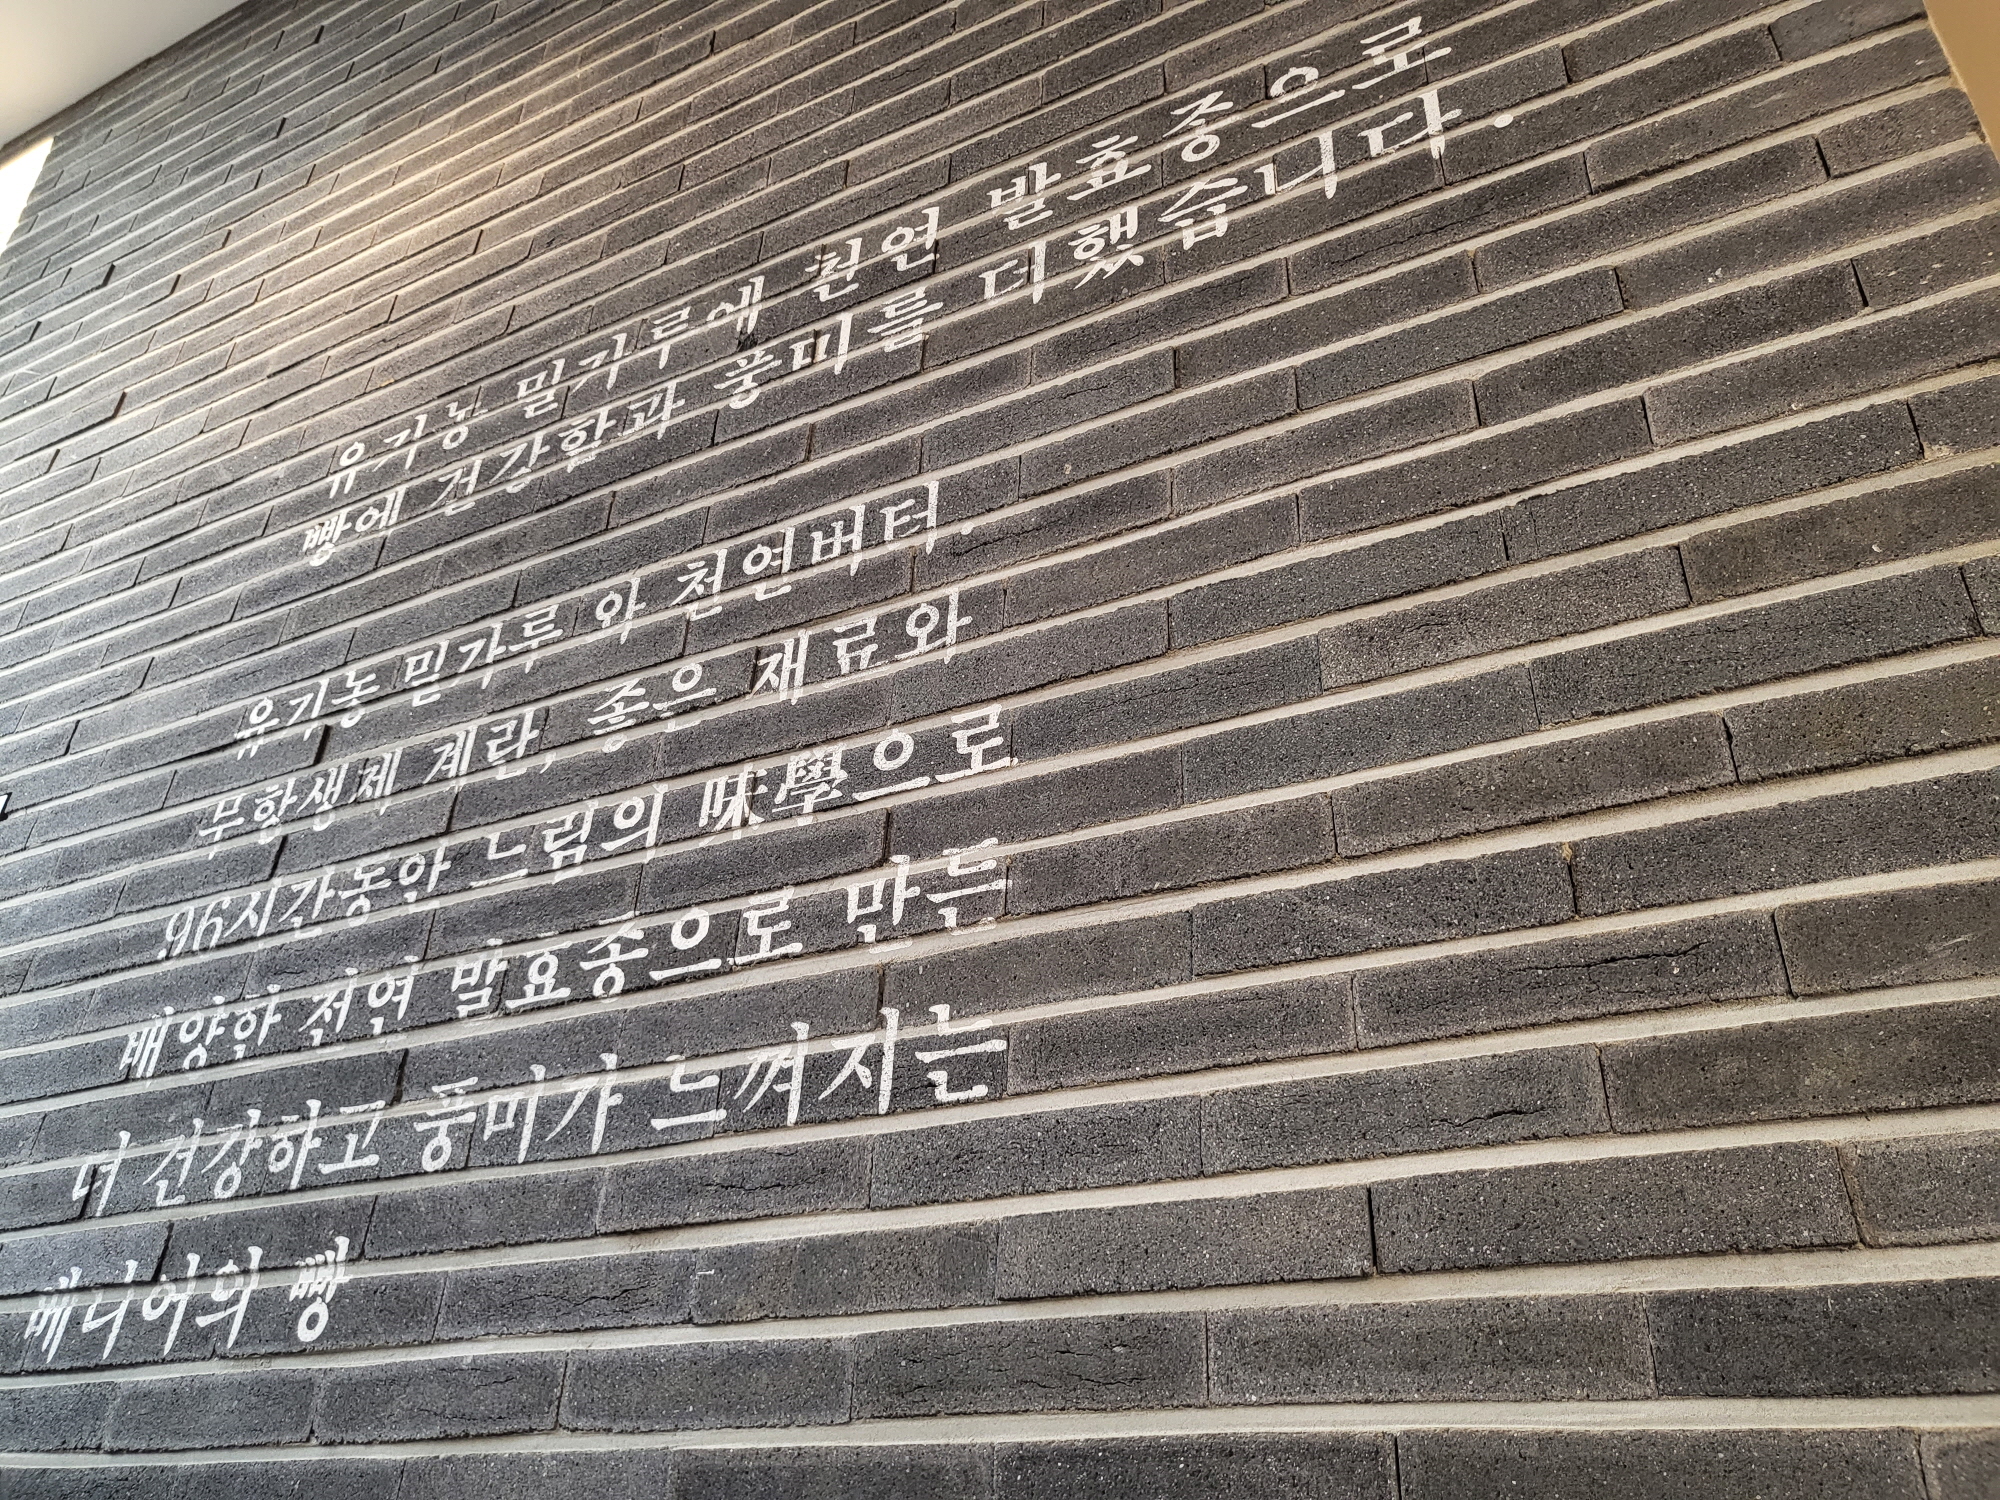 유기농 밀가루에 천연 발효종으로
빵에 건강함과 풍미를 더했습니다.
유기농 밀가루 와 천연버터.
무항생제 계란, 좋은 재료와
96시간동안 느림의 味學으로
배양한 천연 발효종으로 만든
더 건강하고 풍미가 느껴지는
베니어의 빵